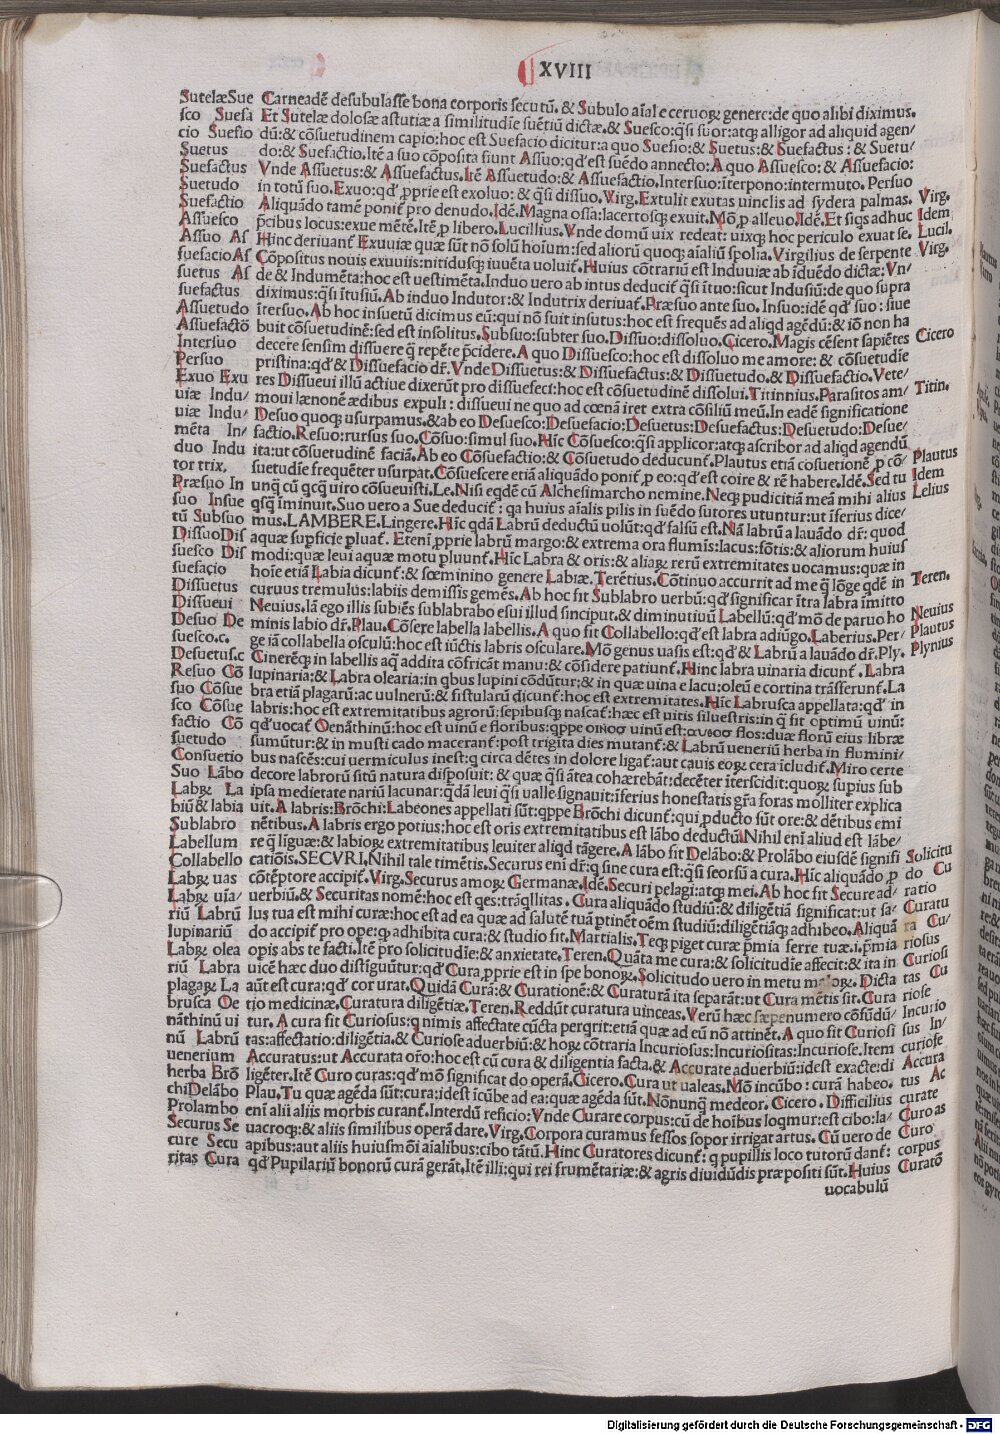 XVIII
SutelæSue
sco Suefa
cio Suefio
Suetus
Suefactus
Suetudo
Suefactio
Assuesco
Assuo As
suefacio As
suetus As
suefactus
Assuetudo
Assuefactō
Intersuo
Persuo
Exuo Exu
uiæ Indu/
uiæ Indu/
mēta In/
duo Indu
tor trix.
Præsuo In
suo Insue
tū Subsuo
DissuoDis
suesco Dis
suefacio
Dissuetus
Dissueui
Desuo De
suesco.c.
Desuetus.c
Resuo Cō
suo Cōsue
sco Cōsue
factio Cō
suetudo
Consuetio
Suo Lābo
Labꝝ La
biū & labia
Sublabro
Labellum
Collabello
Labꝝ uas
Labꝝ uia/
riū Labrū
lupinariū
Labꝝ olea
riū Labra
plagaꝝ La
brusca Oe
nāthinū ui
nū Labrū
uenerium
herba Brō
chi Delābo
Prolambo
Securus Se
cure Secu
ritas Cura
Carneadē desubulasse bona corporis secutū. & Subulo aīal e ceruoꝝ genere:de quo alibi diximus.
Et Sutelæ dolosæ astutiæ a similitudīe suētiū dictæ. & Suesco:q̄si suor:atq; alligor ad aliquid agen/
dū:& cōsuetudinem capio:hoc est Suefacio dicitur:a quo Suesio:& Suetus:& Suefactus:& Suetu/
do:& Suefactio. Itē a suo cōposita fiunt Assuo:qd' est suēdo annecto:A quo Assuesco:& Assuefacio:
Vnde Assuetus:& Assuefactus. Itē Assuetudo:& Assuefactio. Intersuo:īterpono:intermuto. Persuo
in totū suo. Exuo:qd' ꝓprie est exoluo:& q̄si dissuo. Virg. Extulit exutas uinclis ad sydera palmas. Virg.
Aliquādo tamē ponit̄ pro denudo. Idē. Magna ossa:lacertosq; exuit. Mō ꝓ alleuo. Idē. Et siqs adhuc Idem
p̄cibus locus:exue mētē. Itē ꝓ libero. Lucillius. Vnde domū uix redeat: uixq; hoc periculo exuat se. Lucil.
Hinc deriuant̄ Exuuiæ quæ sūt nō solū hoīum:sed aliorū quoq; aīaliū spolia. Virgilius de serpente Virg.
Cōpositus nouis exuuiis:nitidusq; iuuēta uoluit̄. Huius cōtrariū est Induuiæ ab īduēdo dictæ:Vn/
de & Indumēta:hoc est uestimēta. Induo uero ab intus deducit̄ q̄si ītuo:sicut Indusiū:de quo supra
diximus:q̄si ītusiū. Ab induo Indutor:& Indutrix deriuat̄. Præsuo ante suo. Insuo:idē qd' suo: siue
ītersuo. Ab hoc insuetū dicimus eū:qui nō suit insutus:hoc est frequēs ad aliqd agēdū:& iō non ha
buit cōsuetudinē:sed est insolitus. Subsuo:subter suo. Dissuo:dissoluo. Cicero. Magis cēsent sapiētes Cicero
decere sensim dissuere q̄ repēte p̄cidere. A quo Dissuesco:hoc est dissoluo me amore:& cōsuetudie
pristina:qd' & Dissuefacio dr̄. Vnde Dissuetus:& Dissuefactus:& Dissuetudo. & Dissuefactio. Vete/
res Dissueui illū actiue dixerūt pro dissuefeci:hoc est cōsuetudinē dissolui. Titinnius. Parasitos am/ Titin.
moui lænonē ædibus expuli : dissueui ne quo ad cœnā iret extra cōsiliū meū. In eadē significatione
Desuo quoq; usurpamus. & ab eo Desuesco:Desuefacio:Desuetus:Desuefactus:Desuetudo:Desue/
factio. Resuo:rursus suo. Cōsuo:simul suo. Hīc Cōsuesco:q̄si applicor:atq; ascribor ad aliqd agendū
ita:ut cōsuetudinē faciā. Ab eo Cōsuefactio:& Cōsuetudo deducunt̄. Plautus etiā cosuetionē ꝓ cō/ Plautus
suetudīe frequēter usurpat. Cōsuescere etiā aliquādo ponit̄ ꝓ eo:qd' est coire & rē habere. Idē. Sed tu Idem
unq̄ cū qcq̄ uiro cōsueuisti. Le. Nisi eqdē cū Alchesimarcho nemine. Neq; pudicitiā meā mihi alius Lelius
qsq̄ īminuit. Suo uero a Sue deducit̄ : qa huius aīalis pilis in suēdo sutores utuntur:ut īferius dice/
mus. LAMBERE. Lingere. Hīc qdā Labrū deductū uolūt:qd' falsū est. Nā labrū a lauādo dr̄: quod
aquæ supficie ꝑluat̄. Etenī ꝓprie labrū margo:& extrema ora flumīs:lacus:fōtis:& aliorum huius
modi:quæ leui aquæ motu pluunt̄. Hīc Labra & oris:& aliaꝝ rerū extremitates uocamus:quæ in
hoīe etiā Labia dicunt̄:& fœminino genere Labiæ. Terētius. Cōtinuo accurrit ad me q̄ lōge qdē in Teren.
curuus tremulus:labiis demissis gemēs. Ab hoc fit Sublabro uerbū:qd' significar ītra labra īmitto
Neuius. Iā ego illis subiēs sublabrabo esui illud sinciput. & diminutiuū Labellū:qd' mō de paruo ho Neuius
minis labio dr̄. Plau. Cōsere labella labellis. A quo fit Collabello:qd' est labra adiūgo. Laberius. Per/ Plautus
ge iā collabella osculū:hoc est iūctis labris osculare. Mō genus uasis est:qd' & Labrū a lauādo dr̄. Ply. Plynius
Cinerēq; in labellis aq̄ addita cōfricāt manu:& cōsidere patiunt̄. Hinc labra uinaria dicunt̄. Labra
lupinaria:& Labra olearia:in qbus lupini cōdūtur:& in quæ uina e lacu:oleū e cortina trāsferunt̄. La
bra etiā plagarū:ac uulnerū:& fistularū dicunt̄:hoc est extremitates. Hīc Labrusca appellata:qd' in
labris:hoc est extremitatibus agrorū:sepibusq; nascat̄:hæc est uitis siluestris:in q̄ fit optimū uinū:
qd' uocat̄ Oenāthinū:hoc est uinū e floribus:qppe οινοσ uinū est:ανθοσ flos:duæ florū eius libræ
sumūtur:& in musti cado macerant̄:post trigita dies mutant̄:& Labrū ueneriū herba in flumini/
bus nascēs:cui uermiculus inest:q circa dētes in dolore ligat̄:aut cauis eoꝝ cera īcludit̄. Miro certe
decore labrorū sitū natura disposuit:& quæ q̄si ātea cohærebāt:decēter īterscidit:quoꝝ supius sub
ipsa medietate nariū lacunar:qdā leui q̄si ualle signauit:īferius honestatis gr̄a foras molliter explica
uit. A labris:Brōchi:Labeones appellati sūt:qppe Brōchi dicunt̄:qui ꝓducto sūt ore:& dētibus emi
nētibus. A labris ergo potius:hoc est oris extremitatibus est lābo deductū. Nihil enī aliud est lābe/
re q̄ līguæ:& labioꝝ extremitatibus leuiter aliqd tāgere. A lābo fit Delābo:& Prolābo eiusdē signifi Solicitu
catiōis. SECVRI. Nihil tale timētis. Securus enī dr̄:q sine cura est:q̄si seorsū a cura. Hīc aliquādo ꝓ do Cu
cōtēptore accipit̄. Virg. Securus amoꝝ Germanæ. Idē. Securi pelagi:atq; mei. Ab hoc fit Secure ad/ ratio
uerbiū. & Securitas nomē:hoc est qes:trāqllitas. Cura aliquādo studiū:& diligētiā significat:ut sa/ Curatu
lus tua est mihi curæ:hoc est ad ea quæ ad salutē tuā ꝑtinēt oēm studiū:diligētiāq; adhibeo. Aliquā ra Cu/
do accipit̄ pro ope:qꝫ adhibita cura:& studio fit. Martialis. Teq; piget curæ p̄mia ferre tuæ.i.p̄mia riosus
opis abs te facti. Itē pro solicitudīe:& anxietate. Teren. Quāta me cura:& solicitudīe affecit:& ita in Curiosi
uicē hæc duo distīguūtur:qd' Cura ꝓprie est in spe bonoꝝ. Solicitudo uero in metu maloꝝ. Dicta tas Cu
aūt est cura:qd' cor urat. Quidā Curā:& Curationē:& Curaturā ita separāt:ut Cura mētis sit. Cura riose
tio medicinæ. Curatura diligētiæ. Teren. Reddūt curatura uinceas. Verū hæc sæpenumero cōfūdū/ Incurio
tur. A cura fit Curiosus:q nimis affectate cūcta perqrit:etiā quæ ad eū nō attinēt. A quo fit Curiosi sus In/
tas:affectatio:diligētia. & Curiose aduerbiū:& hoꝝ cōtraria Incuriosus:Incuriositas:Incuriose. Item curiose
Accuratus:ut Accurata or̄o:hoc est cū cura & diligentia facta. & Accurate aduerbiū:idest exacte:di Accura
ligēter. Itē Curo curas:qd' mō significat do operā. Cicero. Cura ut ualeas. Mō incūbo: curā habeo. tus Ac
Plau. Tu quæ agēda sūt:cura:idest īcūbe ad ea:quæ agēda sūt. Nōnunq̄ medeor. Cicero. Difficilius curate
enī alii aliis morbis curant̄. Interdū reficio:Vnde Curare corpus:cū de hoībus loqmur:est cibo:la/ Curo as
uacroq;:& aliis similibus operā dare. Virg. Corpora curamus fessos sopor irrigat artus. Cū uero de Curo
apibus:aut aliis huiusmōi aīalibus:cibo tātū. Hinc Curatores dicunt̄: q pupillis loco tutorū dant̄: corpus
qd' Pupilariū bonorū curā gerāt. Itē illi:qui rei frumētariæ:& agris diuidūdis præpositi sūt. Huius Curatō
uocabulū
Digitalisierung gefördert durch die Deutsche Forschungsgemeinschaft - DFG